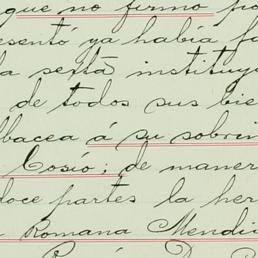 que no firmó po
esentó ya había fa
la sexta instituy
de todos sus bie
lbacea á su sobrin
Cosío; de maner
doce partes la her
Romana Mendi